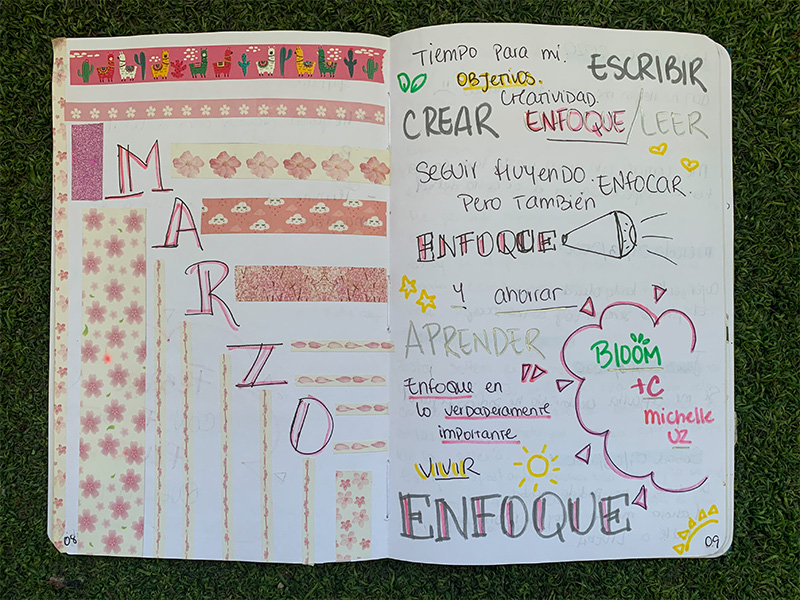 MARZO
08
Tiempo para mi.
OBJETIVOS.
ESCRIBIR
Creatividad.
CREAR ENFOQUE/LEER
Seguir fluyendo. ENFOCAR.
Pero También
ENFOQUE
Y ahorrar
APRENDER
BLOOM
+C
michelle
UZ
Enfoque en
lo verdaderamente
importante
VIVIR
ENFOQUE
09